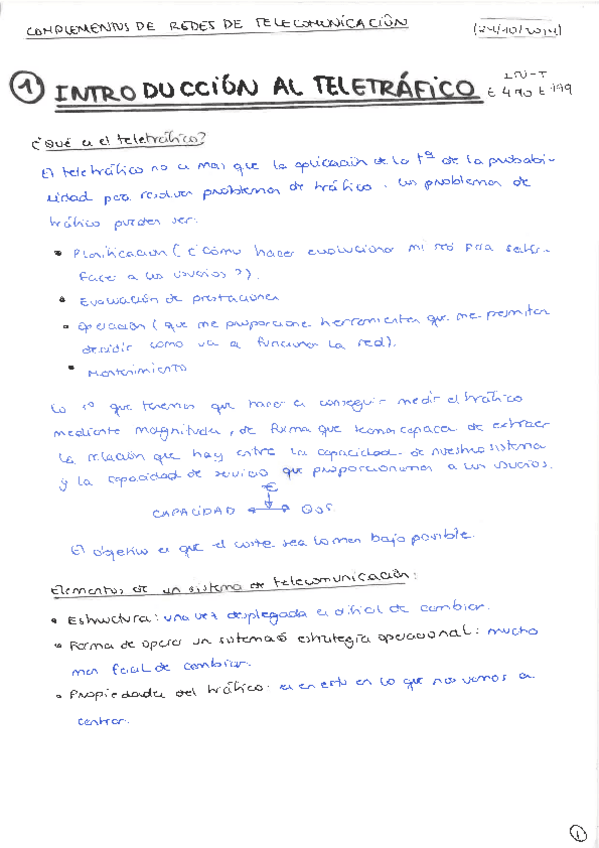 COMPLEMENTOS DE REDES DE TELECOMUNICACIÓN
(24/10/2014)
① INTRODUCCIÓN AL TELETRÁFICO
E 490 E 499
¿Qué es el teletráfico?
El teletráfico no es mas que la aplicación de la Tª de la probabi-
lidad para resolver problemas de tráfico. Los problemas de
tráfico pueden ser:
• Planificación (¿Cómo hacer evolucionar mi red para satis-
facer a los usuarios?).
• Evaluación de prestaciones
• Operación (que me proporcione herramientas que me permitan
decidir como va a funcionar la red).
• Mantenimiento
Lo 1º que tenemos que hacer es conseguir medir el tráfico
mediante magnitudes, de forma que seamos capaces de extraer
la relación que hay entre la capacidad de nuestro sistema
y la capacidad de servicio que proporcionamos a los usuarios.
€
CAPACIDAD QoS
El objetivo es que el coste sea lo mas bajo posible.
Elementos de un sistema de telecomunicación:
• Estructura: una vez desplegada es difícil de cambiar.
• Forma de operar un sistema ó estrategia operacional: mucho
mas facil de cambiar.
• Propiedades del tráfico: es en esto en lo que nos vamos a
centrar.
①